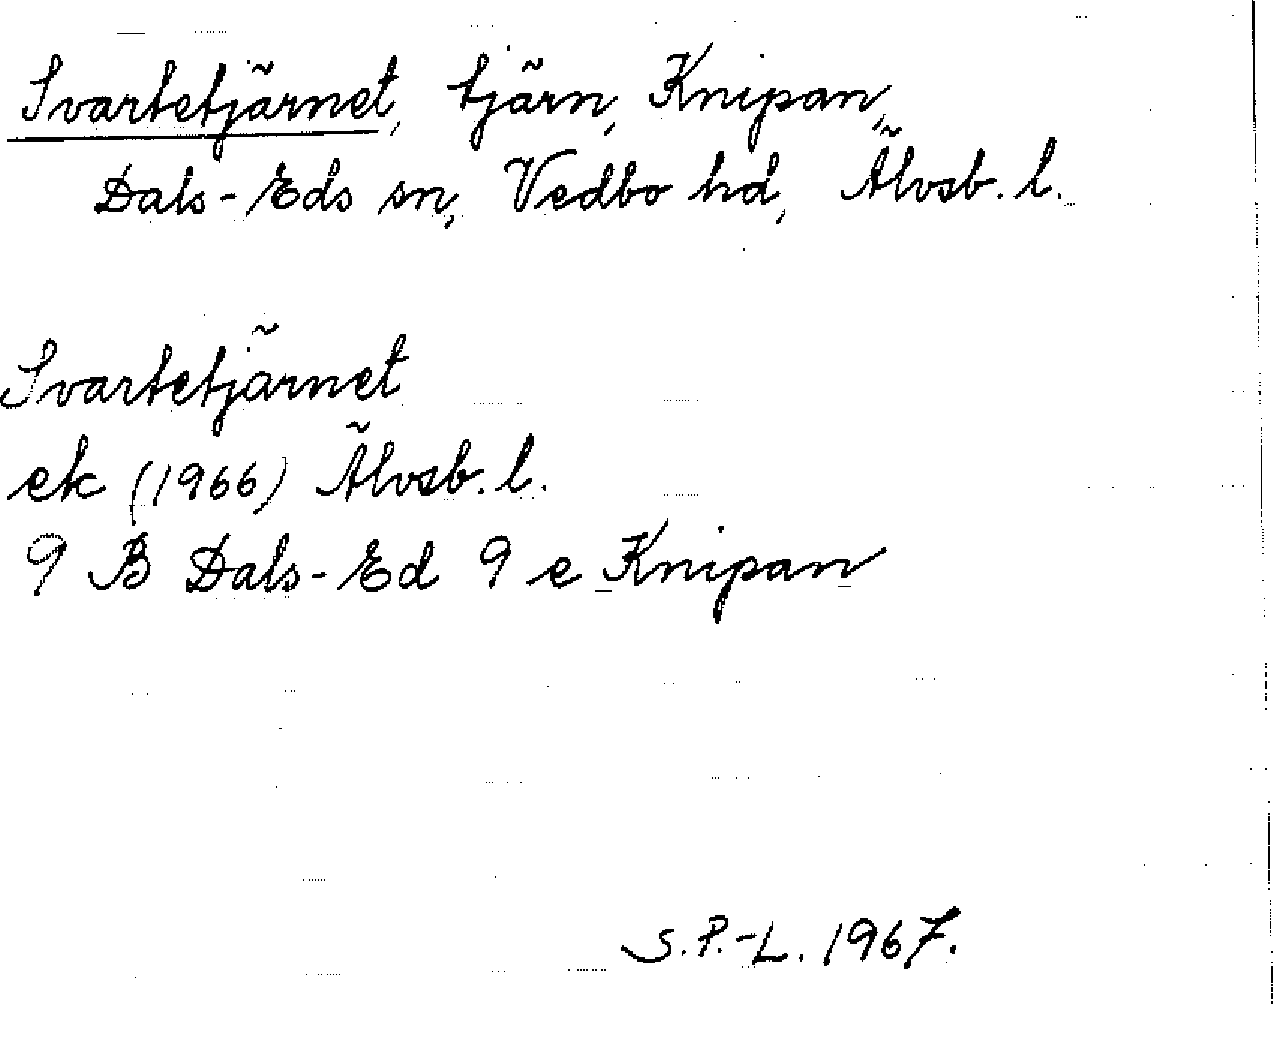 Svartetjärnet, tjärn, Knipan,
Dals-Eds sn, Vedbo hd, Älvsb. l.
Svartetjärnet
ek (1966) Älvsb. l.
9 B Dals-Ed 9 e Knipan
S.P.-L. 1967.